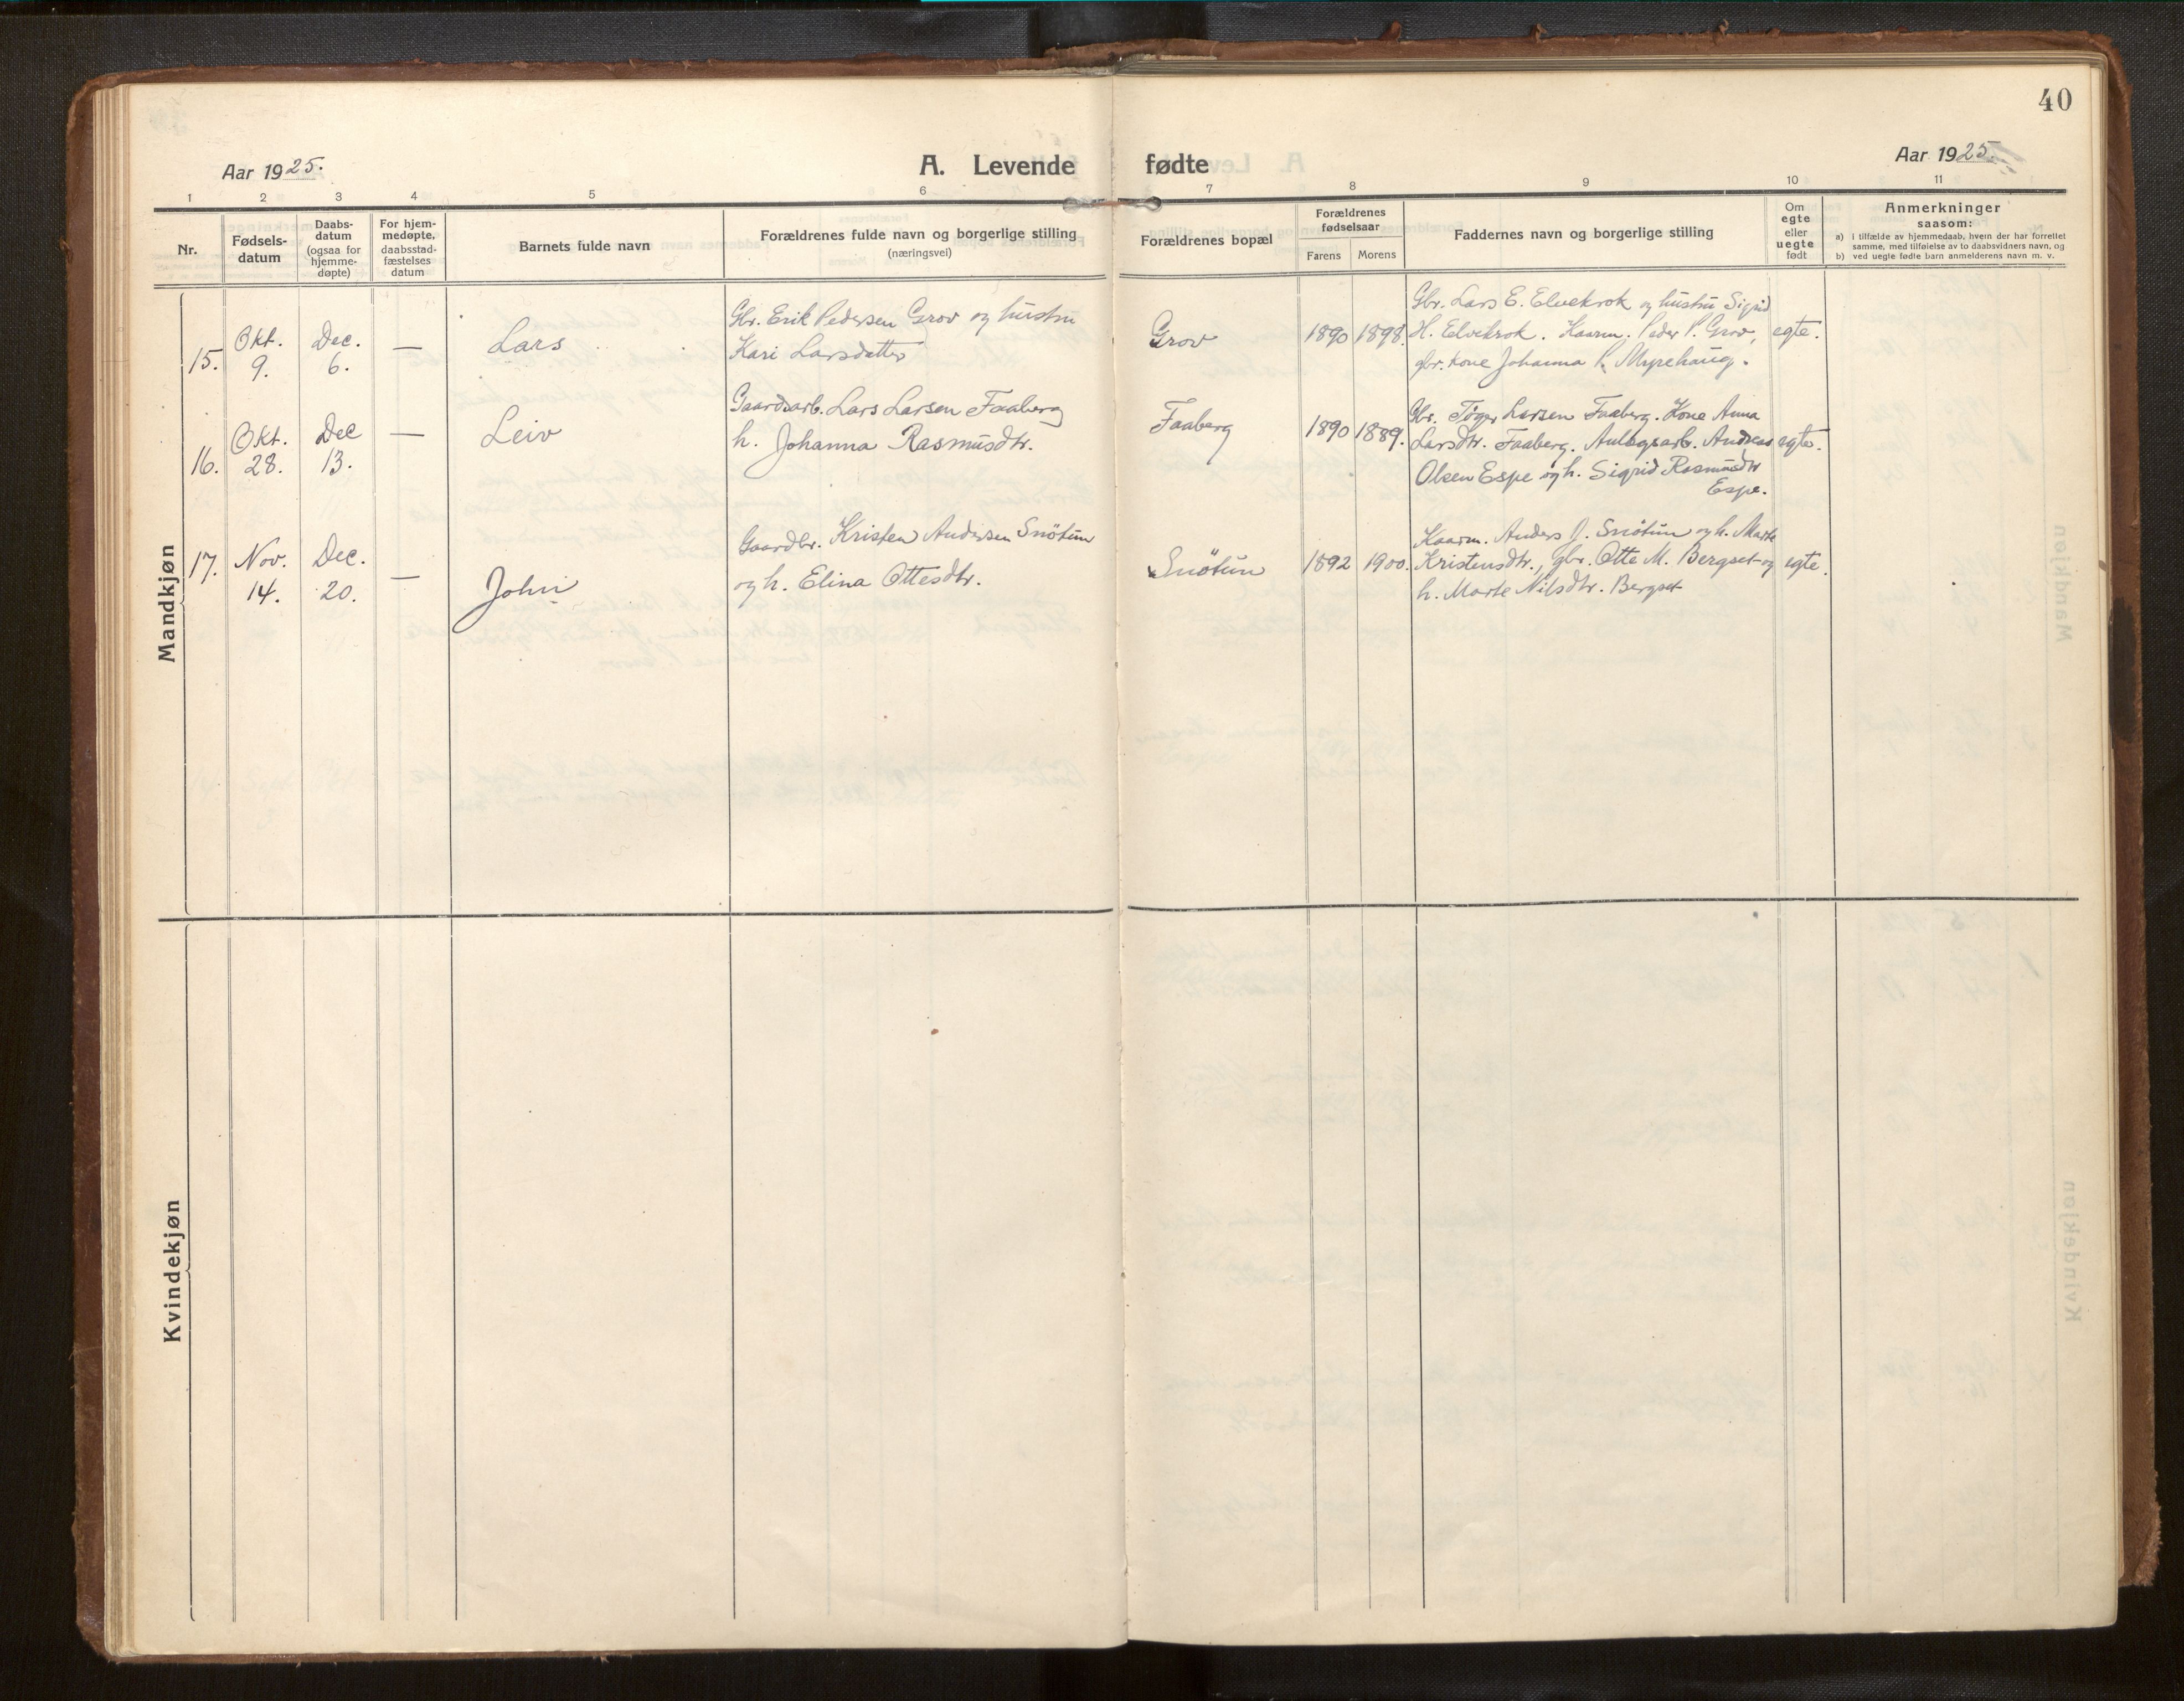 40
Aar 1925.
A. Levende fødte
Aar 1925.
1 2 3 4 5 6 7 8 9 10 11
Nr.
Fødsels-
datum
Daabs-
datum
(ogsaa for
hjemme-
døpte)
For hjem-
medøpte,
daabsstad-
fæstelses
datum
Barnets fulde navn
Forældrenes fulde navn og borgerlige stilling
(næringsvei)
Forældrenes bopæl
Forældrenes
fødselsaar
Farens Morens
Faddernes navn og borgerlige stilling
Om
egte
eller
uegte
født
Anmerkninger
saasom:
a) i tilfælde av hjemmedaab, hvem der har forrettet
samme, med tilføielse av to daabsvidners navn, og
b) ved uegte fødte barn anmelderens navn m. v.
Mandkjøn
15.
Okt.
9.
Dec.
6.
—
Lars
Gbr. Erik Pedersen Grov og hustru
Kari Larsdatter
Grov
1890 1898.
Gbr. Lars E. Elvekrok og hustru Sigrid
H. Elvekrok. Kaarm. Peder P. Grov,
gbr. kone Johanna P. Myrehaug.
egte.
16.
Okt.
28.
Dec
13.
—
Leiv
Gaardsarb. Lars Larsen Faaberg
h. Johanna Rasmusdtr.
Faaberg
1890 1889.
Gbr. Tøger Larsen Faaberg. Kone Anna
Larsdtr. Faaberg. Anlægsarb. Andreas
Olsen Espe og h. Sigrid Rasmusdtr
Espe.
egte.
17.
Nov.
14.
Dec.
20.
—
John
Gaardbr. Kristen Andersen Snötun
og h. Elina Ottesdtr.
Snötun
1892 1900.
Kaarm. Anders J. Snötun og h. Marte
Kristensdtr., gbr. Otte M. Bergset og
h. Marte Nilsdtr. Bergset
egte.
Kvindekjøn